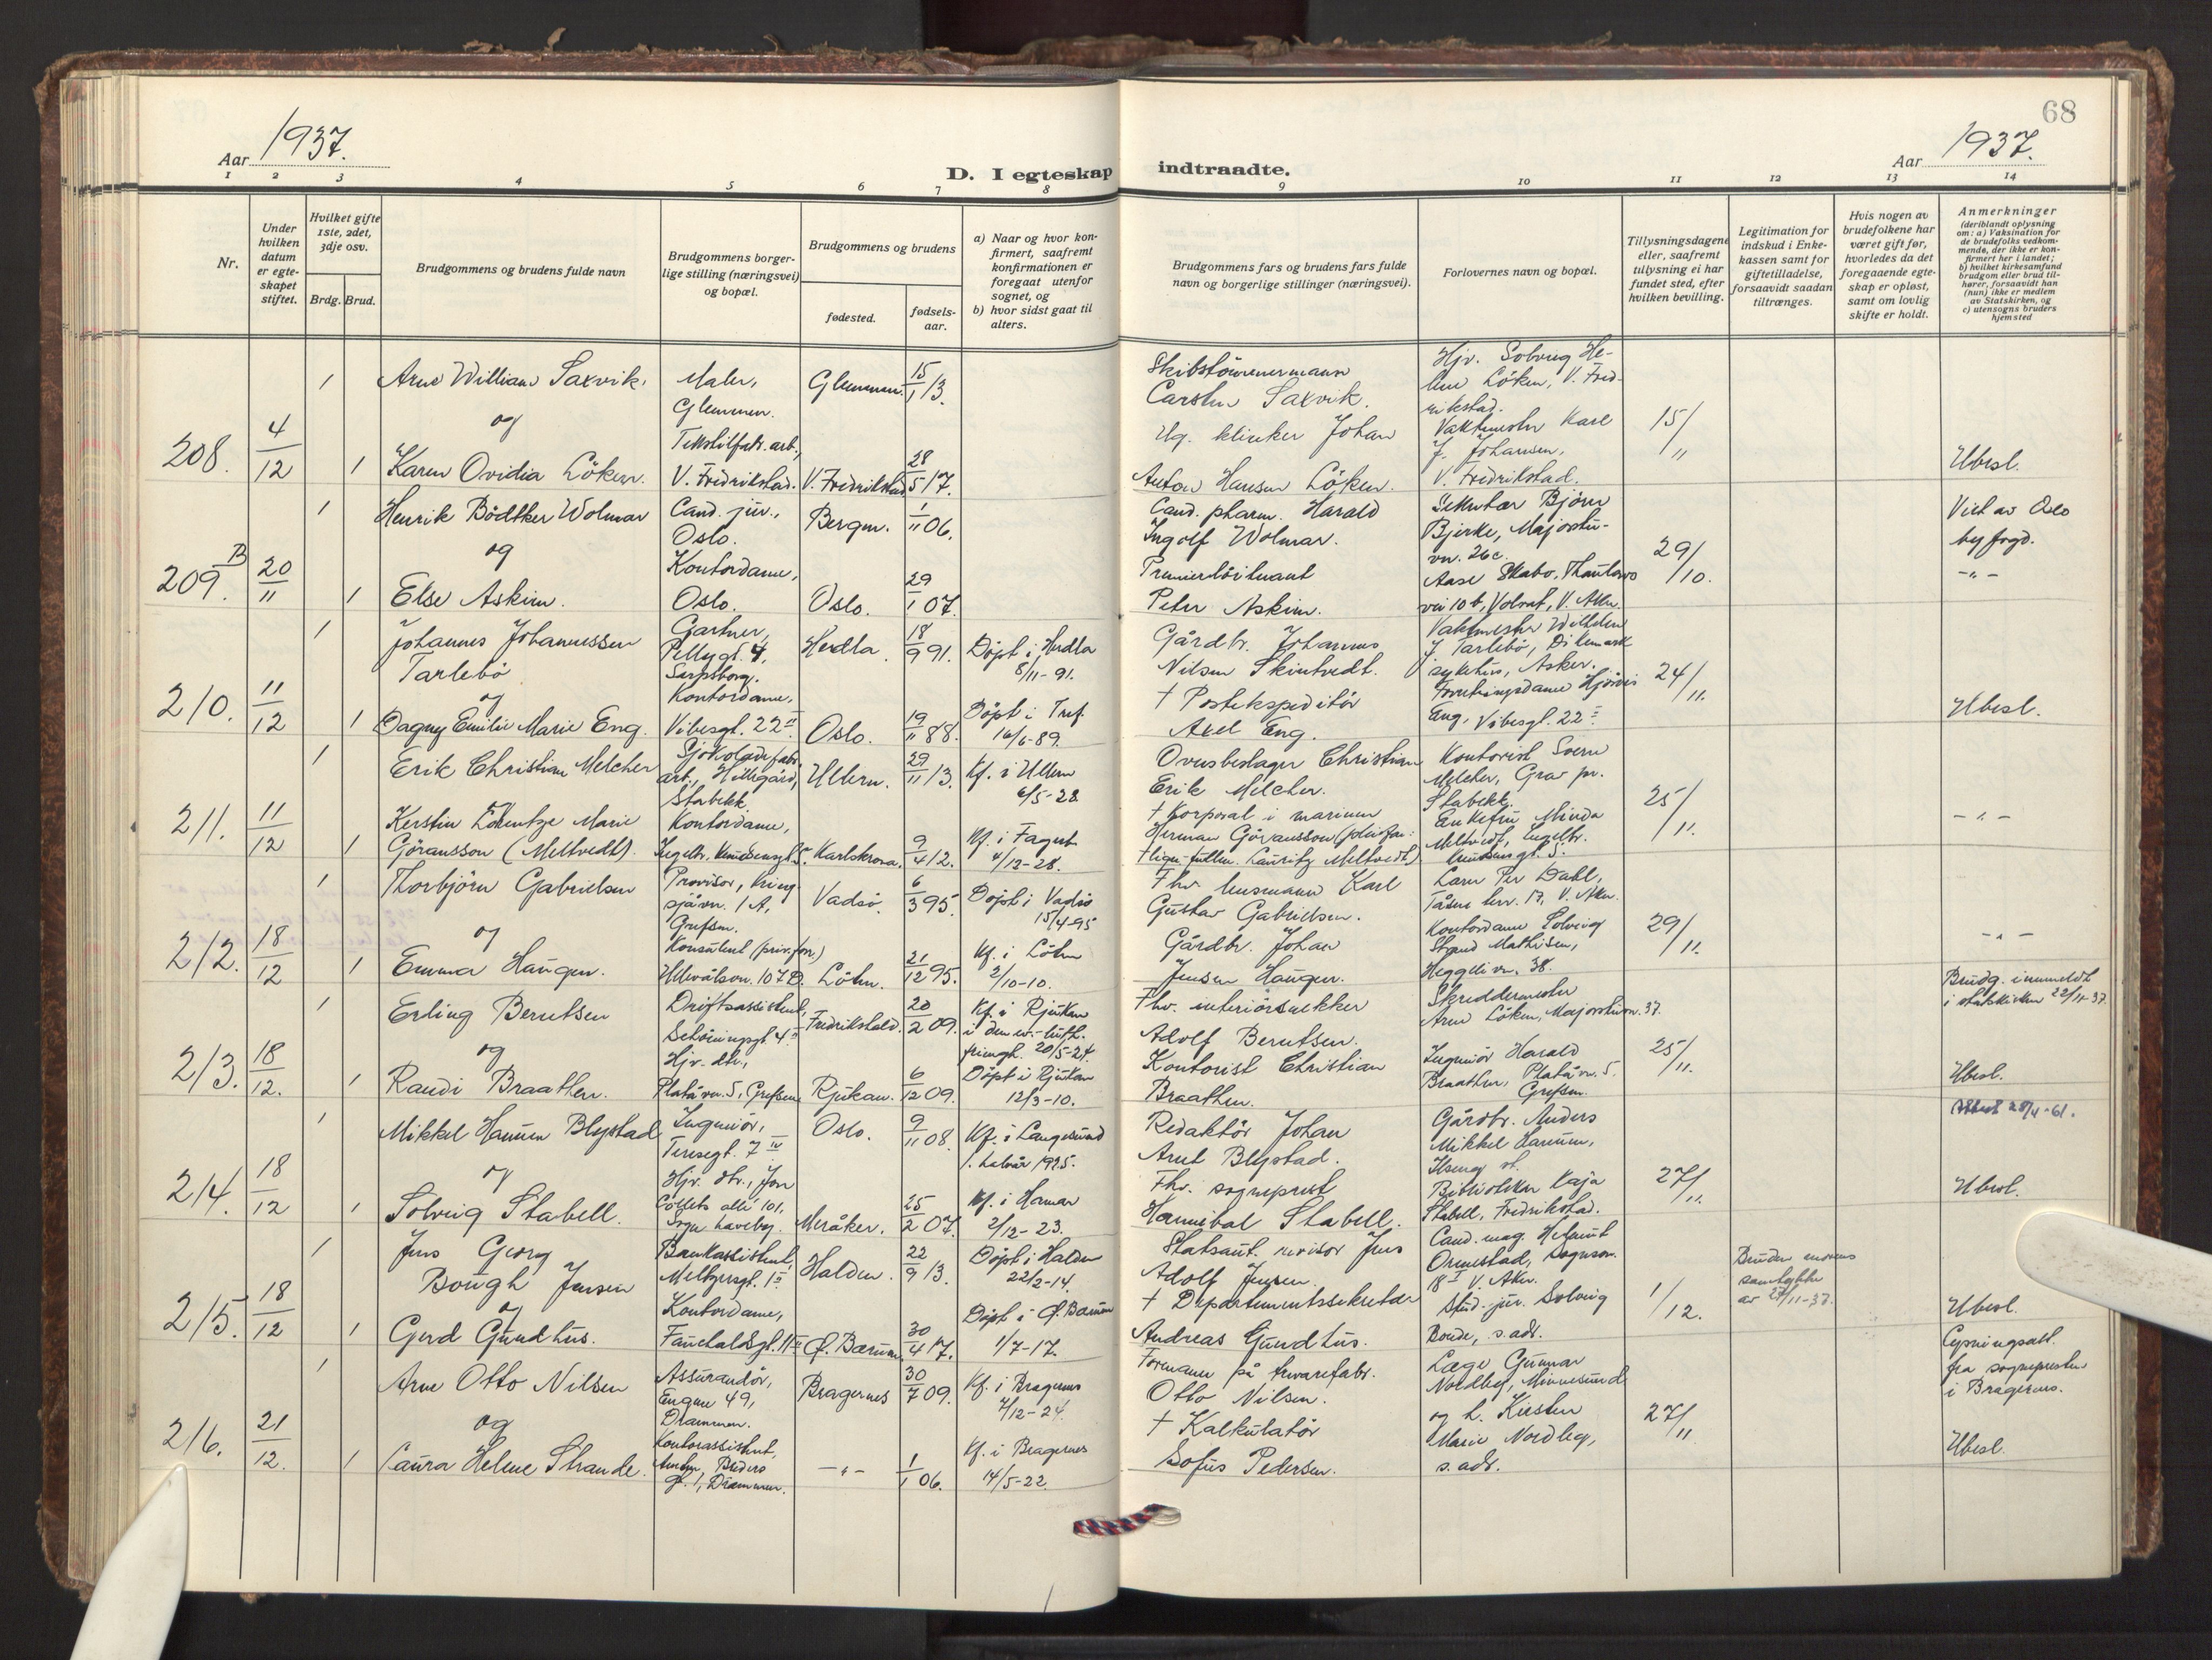 68
Aar 1937.
Aar 1937.
D. I egteskap indtraadte.
1 2 3 4 5 6 7 8 9 10 11 12 13 14
Nr.
Under hvilken datum er egteskapet stiftet.
Hvilket gifte 1ste, 2det, 3dje osv.
Brdg. Brud.
Brudgommens og brudens fulde navn
Brudgommens borgerlige stilling (næringsvei) og bopæl.
Brudgommens og brudens
fødested.
fødselsaar.
a) Naar og hvor konfirmert, saafremt konfirmationen er foregaat utenfor sognet, og
b) hvor sidst gaat til alters.
Brudgommens fars og brudens fars fulde navn og borgerlige stillinger (næringsvei).
Forlovernes navn og bopæl.
Tillysningsdagene eller, saafremt tillysning ei har fundet sted, efter hvilken bevilling.
Legitimation for indskud i Enkekassen samt for giftetilladelse, forsaavidt saadan tiltrænges.
Hvis nogen av brudefolkene har været gift før, hvorledes da det foregaaende egteskap er opløst, samt om lovlig skifte er holdt.
Anmerkninger
(deriblandt oplysning om: a) Vaksination for de brudefolks vedkommende, der ikke er konfirmert her i landet; b) hvilket kirkesamfund brudgom eller brud tilhører, forsaavidt han (hun) ikke er medlem av Statskirken, og c) utensogns bruders hjemsted
208. 4/12
1 Arne William Saxvik. Maler, Glemmen. Glemmen. 15/1 13.
og
1 Karen Ovidia Löken. Tekstilfabr. arb., V. Fredrikstad. V. Fredrikstad 28/5 17.
Skibstömmermann
Carsten Saxvik.
Johan
Anton Hansen Löken.
Hjv. Solveig Helene Löken, V. Fredrikstad.
Vaktmester Karl J. Johansen, V. Fredrikstad.
15/11
Ubesl.
209. B 20/11
1 Henrik Bödtker Wolmar Cand. jur., Oslo. Bergen. 1/11 06.
og
1 Else Askim. Kontordame, Oslo. Oslo. 29/1 07.
Cand. pharm. Harald
Ingolf Wolmar.
Premierlöitnant
Peter Askim.
Sekretær Björn
Bjerke, Majorstuvn. 26c.
Aase Skabo,
vei 10 b, V. Aker.
29/10.
Viet av Oslo byfogd.
-"-
210. 11/12
1 Johannes Johannessen
Tarlebö
Gartner, Pellygt. 4, Sarpsborg. Herdla 18/9 91. Döpt i Herdla 8/11-91.
og
1 Dagny Emilie Marie Eng. Kontordame, Vibesgt. 22 II. Oslo. 19/11 88. Döpt i Tref. 16/6-89.
Gårdbr. Johannes
Nilsen Skintvedt.
† Postekspeditör
Axel Eng.
Vaktmester Wilhelm
J. Tarlebö, Dikemark
sykehus, Asker.
Forretningsdame Hjördis
Eng, Vibesgt. 22 II.
24/11.
Ubesl.
211. 11/12
1 Erik Christian Melcher arb., Hellegård, Stabekk. Ullern. 29/11 13. Kf. i Ullern 6/5-28.
Kerstin Marie
1 Göransson (Meltvedt). Kontordame, Ingebr. Knudsensgt. 5. Karlskrona. 9/4 12. Kf. i Fagerb. 4/12-28.
Ovnsbeslager Christian
Erik Melcher.
† Korporal i marinen
Herman Göransson (pleiefar:
Lauritz Meltvedt)
Kontorist Sverre
Melcher, Grav pr.
Stabekk.
Enkefru Minda
Meltvedt, Ingebr.
Knudsensgt. 5.
25/11.
-"-
212. 18/12
1 Thorbjörn Gabrielsen Provisor, Kringsjåvn. 1 A, Grefsen. Vadsö. 6/3 95. Döpt i Vadsö 15/4-95
og
1 Emma Haugen. Konsulent (priv. forr.) Ullevålsvn. 107 D. Löten. 21/12 95. Kf. i Löten 2/10-10.
Fhv. Karl
Gustav Gabrielsen.
Gårdbr. Johan
Jensen Haugen.
Lærer Per Dahl,
Tåsen terr. 17, V. Aker.
Kontordame Solveig
Strand Mathisen,
Heggeli vn. 38.
29/11.
-"-
213. 18/12.
1 Erling Berntsen Driftsassistent, Schöningsgt. 4. Fredrikshald. 20/2 09. Kf. i Rjukan i den ev.-luth. frimgh. 20/5-24.
og
1 Randi Braathen. Hjv. dtr., Platåvn. 5, Grefsen Rjukan. 6/12 09. Döpt i Rjukan 12/3-10.
Fhv. interiörsnekker
Adolf Berntsen.
Kontorist Christian
Braathen.
Skreddermester
Arne Löken, Majorstuvn. 37.
Ingeniör Harald
Braathen, Platåvn. 5.
Grefsen.
25/11.
Brudg. innmeldt
i statskirken 22/11-37
Ubesl.
214. 18/12
1 Mikkel Blystad Ingeniör, Teresesgt. 7 IV Oslo. 9/11 08. Kf. i Langesund 1. halvår 1925.
og
1 Solveig Stabell. Hjv. dtr., Jon Colletts allé 101, Sogn haveby. Meråker. 25/2 07. Kf. i Hamar 2/12-23.
Redaktör Johan
Arnt Blystad.
Fhv. sogneprest
Hannibal Stabell.
Gårdbr. Anders
Mikkel
Ilseng st.
Bibliotekar Kaja
Stabell, Fredrikstad.
27/11.
Ubesl.
215. 18/12
1 Jens Georg
Bough Jensen
Bankassistent, Meltzersgt. 1 II Halden. 22/9 13. Döpt i Halden 22/2-14.
og
1 Gerd Gundhus. Kontordame, Fauchaldsgt. 11 II Ø. Bærum. 30/4 17. Döpt i Ø. Bærum 1/7-17.
Statsaut. revisor Jens
Adolf Jensen.
† Departementssekretær
Andreas Gundhus.
Cand. mag. Helmut
Ormestad, Sognsvn.
18 I V. Aker.
Stud. jur. Solveig
Bonde, s. ads.
1/12.
Bruden morens
samtykke
av 27/11-37.
Ubesl.
216. 21/12.
1 Arne Otto Nilsen Assurandör, Engene 49, Drammen. Bragernes 30/7 09. Kf. i Bragernes 7/12-24.
og
1 Laura Helene Strande. Kontorassistent, gt. 1, Drammen. -"- 1/1 06. Kf. i Bragernes 14/5-22.
Formann på trevarefabr.
Otto Nilsen.
† Kalkulatör
Sofus Pedersen.
Læge Gunnar
Nordbey, Minnesund
og h. Kirsten
Marie Nordbey,
s. ads.
27/11
Lysningsatt.
fra sognepresten
i Bragernes.
Ubesl.